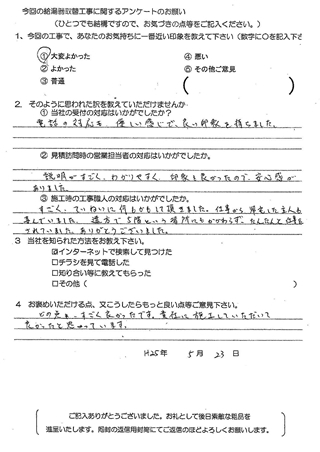 今回の給湯器取替工事に関するアンケートのお願い
(ひとつでも結構ですので、お気づきの点等をご記入ください。)
1、今回の工事で、あなたのお気持ちに一番近い印象を教えて下さい(数字に○を記入下さ
①大変よかった ④悪い
②よかった ⑤その他ご意見
③普通 (
2. そのように思われた訳を教えていただけませんか
①当社の受付の対応はいかがでしたか?
電話の対応も、優しい感じで、良い印象を持ちました。
②見積訪問時の営業担当者の対応はいかがでしたか。
説明がすごく、わかりやすく、印象も良かったので、安心感が
ありました。
③施工時の工事職人の対応はいかがでしたか。
すごく、ていねいに何もかもして頂きました。仕事から帰宅した主人も
喜んでいました。遠方で5階という場所にもかかわらず、たんたんと仕事を
されていました。ありがとうございました。
3 当社を知られた方法をお教え下さい。
☑インターネットで検索して見つけた
□チラシを見て電話した
□知り合い等に教えてもらった
□その他(
4 お褒めいただける点、又こうしたらもっと良い点等ご意見下さい。
どの点も、すごく良かったです。貴社に施工していただいて
良かったと思っています。
H25年 5月 23日
ご記入ありがとうございました。お礼として後日素敵な粗品を
進呈いたします。同封の返信用封筒にてご返信のほどよろしくお願いします。